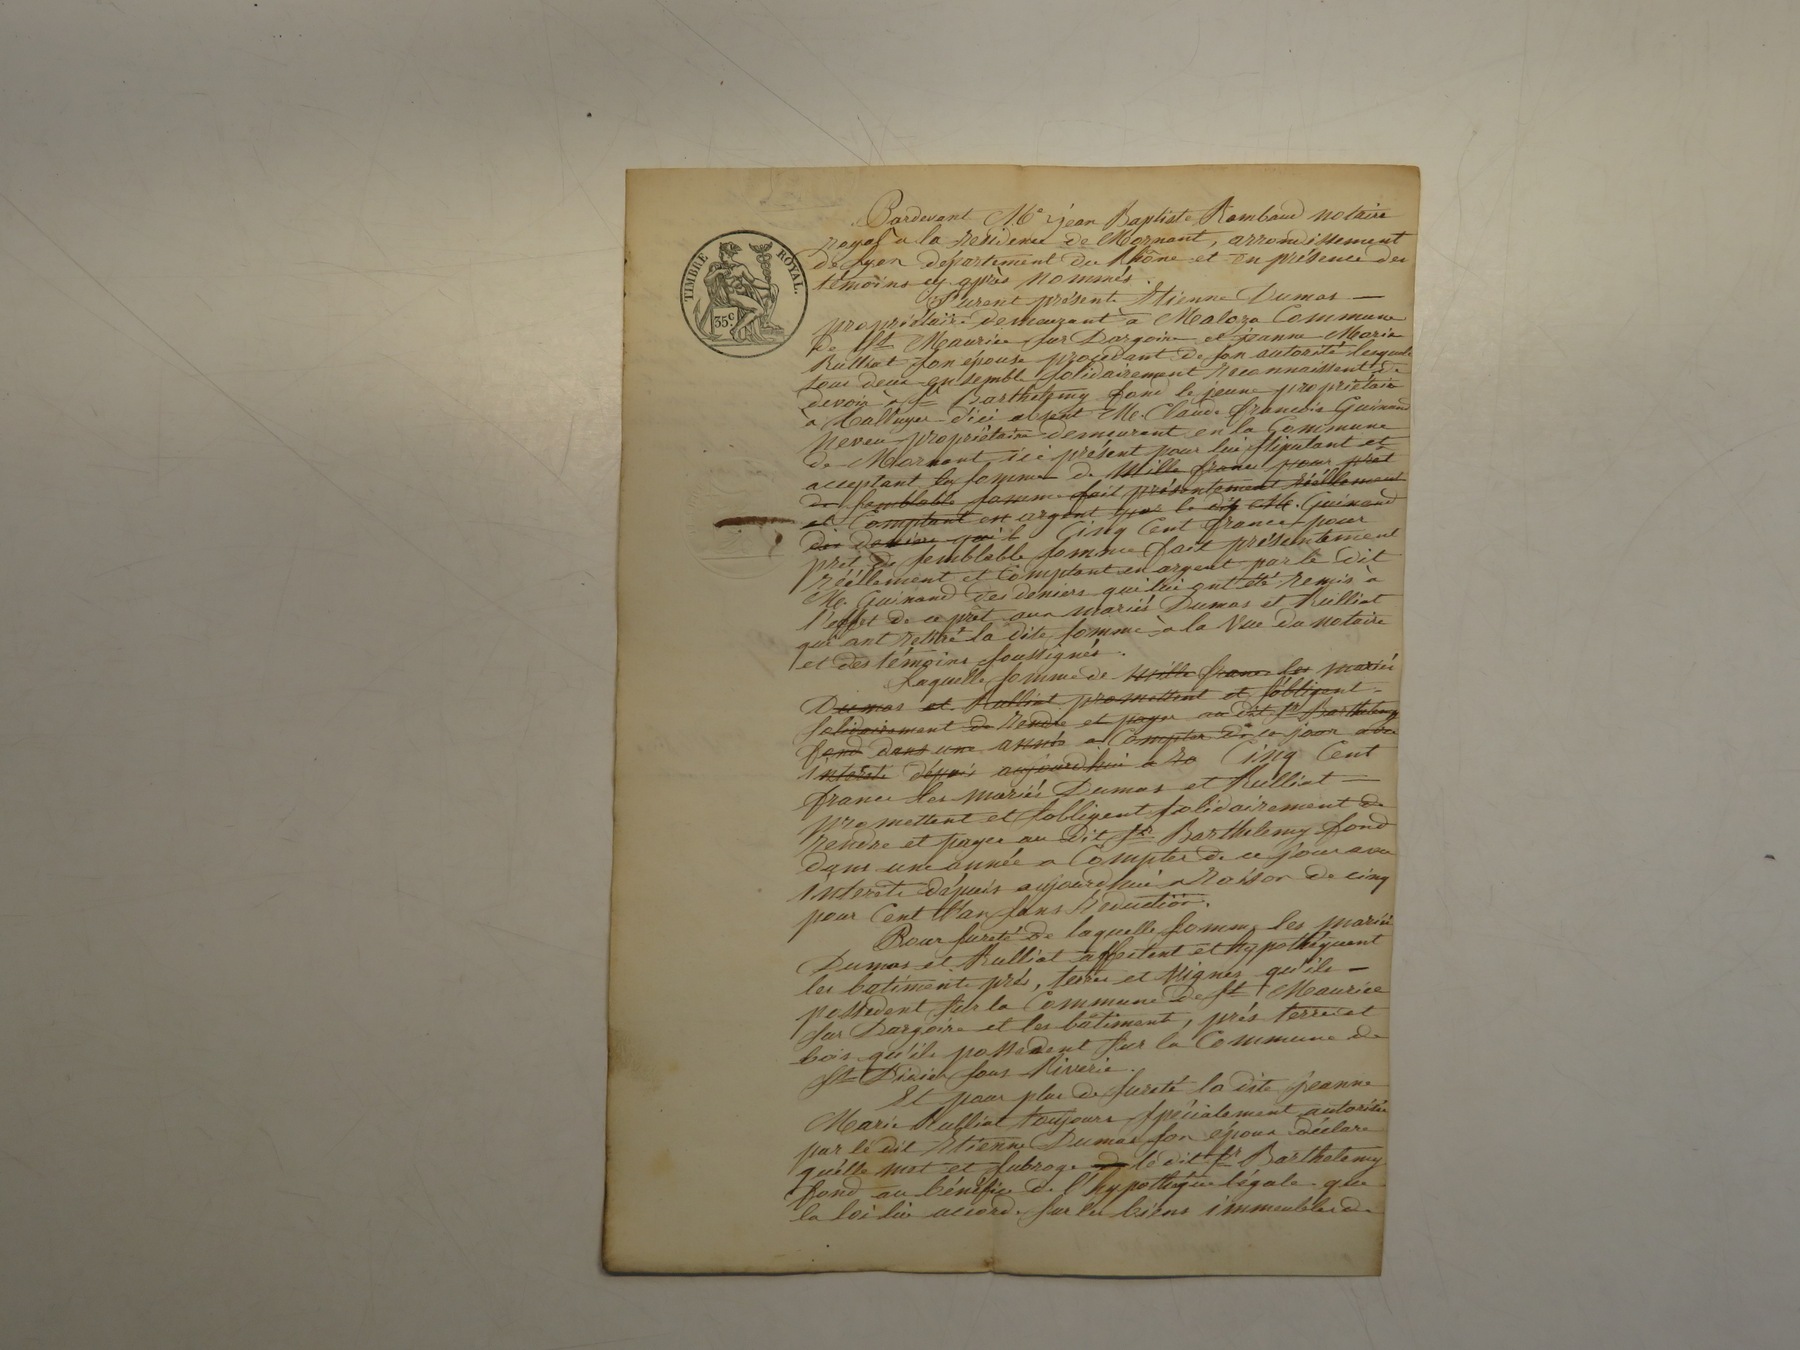 TIMBRE ROYAL.
35c.
Pardevant Me jean Baptiste Rambaud notaire
royal a la residence de Mornant, arrondissement
de Lyon departement du Rhône et en présence des
témoins cy après nommés.
Furent présents Etienne Dumas —
propriétaire demeurant à Maloza Commune
de St Maurice sur Dargoire et jeanne Marie
Rulliat son épouse procedant de son autorité lesquels
tous deux ensemble solidairement reconnaissent de
devoir à Sr Barthelemy fond le jeune propriétaire
à d'ici absent Me. Claude françois Guinand
neveu propriétaire demeurant en la Commune
de Mornant ici présent pour lui stipulant et
acceptant la somme de mille francs pour prêt
de semblable somme fait présentement réellement
et Comptant en argent par le dit Me. Guinand
des deniers qu'il Cinq Cent francs pour
prêt de semblable somme fait présentement
réellement et Comptant en argent par le dit
Me. Guinand des deniers qui lui ont été remis à
l'effet de ce prêt aux mariés Dumas et Rulliat
qui ont retiré la dite somme à la Vue du notaire
et des témoins soussignés.
Laquelle somme de mille francs les mariés
Dumas et Rulliat promettent et s'obligent
solidairement de rendre et payer au dit Sr Barthelemy
fond dans une année a Compter de ce jour avec
interets dépuis aujourdhui a ra Cinq Cent
francs les mariés Dumas et Rulliat —
promettent et sobligent solidairement de
rendre et payer au dit Sr Barthelemy fond
dans une année a Compter de ce jour avec
interets dépuis aujourdhui a Raison de cinq
pour Cent l'an sans Réduction.
Pour sureté de laquelle somme les mariés
Dumas et Rulliat affectent et hypothéquent
les batiments prés, terres et Vignes qu'ils —
possedent sur la Commune de St Maurice
sur Dargoire et les bâtiment, prés terre et
bois qu'ils possedent sur la Commune de
St Didier sous Riverie.
Et pour plus de sureté la dite jeanne
Marie Rulliat toujours spécialement autorisée
par le dit Etienne Dumas son époux déclare
qu'elle met et subroge le dit Sr Barthelemy
fond au bénéfice de l'hypothèque légale que
la loi lui accorde sur les biens immeubles de